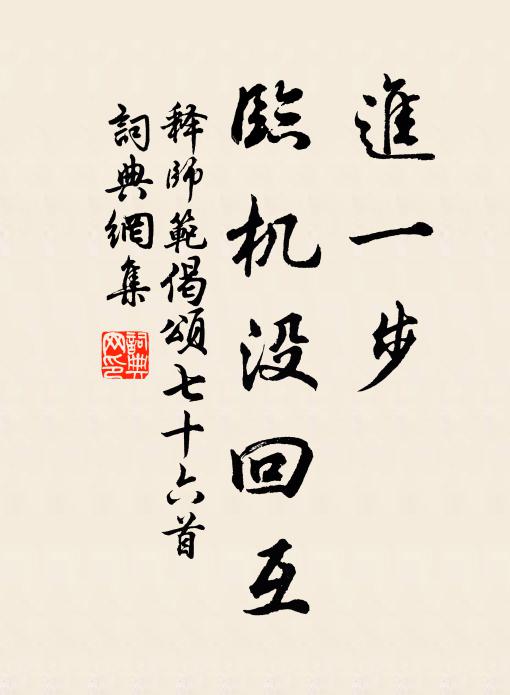 進一步
臨机没回互
释師範偈頌七十六首
詞典網集
詞典网印